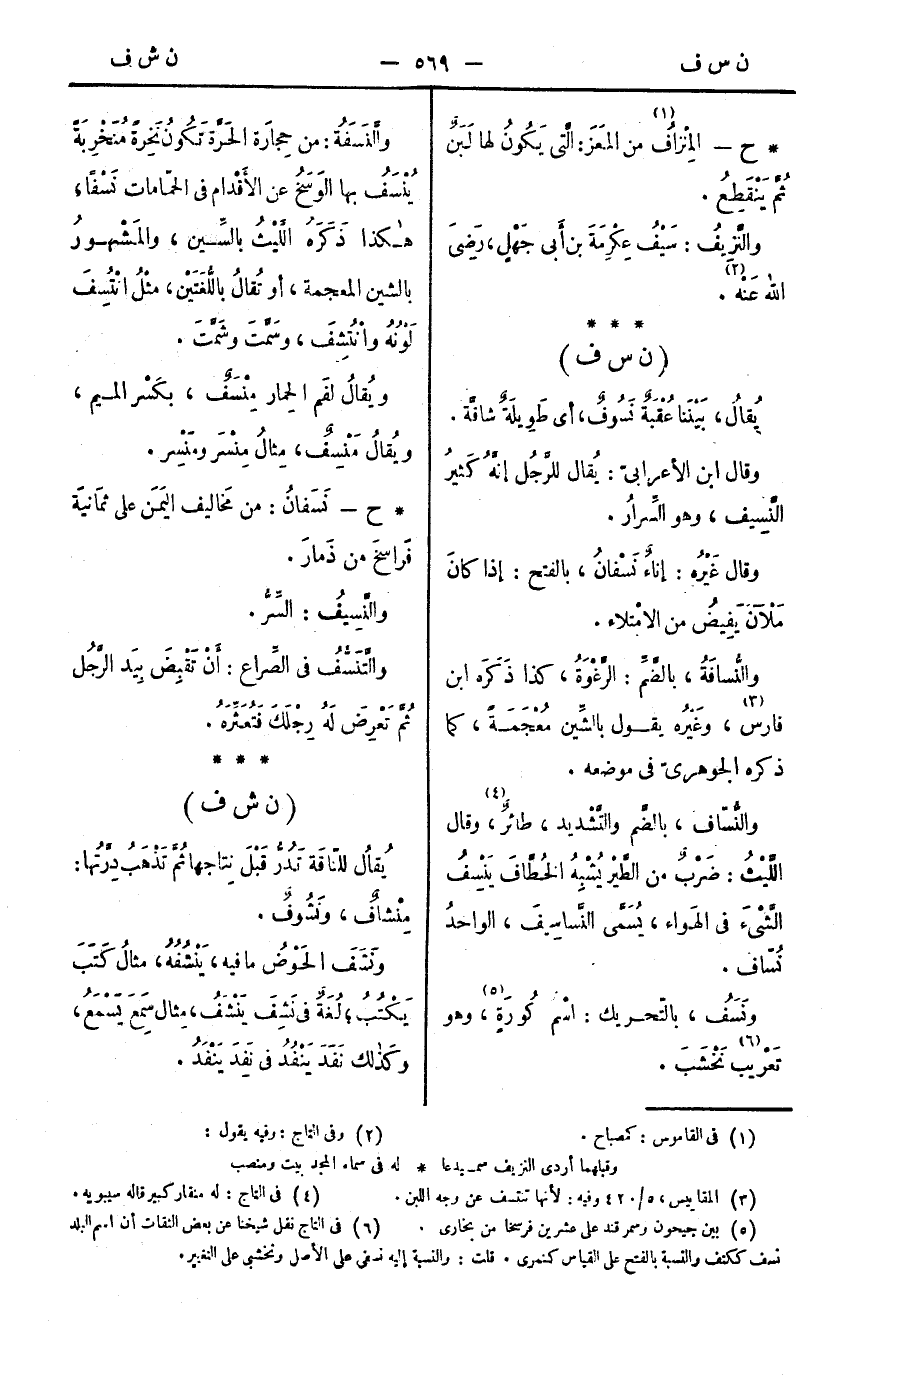 ن س ف — ٥٦٩ — ن ش ف
* ح — المِنْزافُ (١) من المَعَز: الَّتى يَكونُ لها لَبَنٌ
ثُمَّ يَنْقَطِعُ .
والنَّزِيفُ : سَيْفُ عِكْرِمَةَ بن أَبى جَهْلٍ، رَضِىَ
اللهُ عَنْه (٢) .
* * *
( ن س ف )
يُقالُ، بَيْنَنا عُقْبَةٌ نَسُوفٌ، أى طَوِيلَةٌ شاقَّة .
وقال ابن الأعرابىّ : يُقال للرَّجُل إنَّهُ كَثيرُ
النَّسِيف ، وهو السِّرارُ .
وقال غَيْرُه : إناءٌ نَسْفانُ ، بالفتح : إذا كانَ
مَلْآنَ يَفِيضُ من الامْتلاء .
والنُّسافَةُ ، بالضَّمِّ : الرَّغْوَةُ ، كذا ذَكَرَه ابن
فارس (٣) ، وغَيْرُه يقــول بالشِّين مُعْجَمَــةً ، كما
ذكره الجوهرىّ فى موضعه .
والنُّسّاف ، بالضَّم والتَّشْديد ، طائرٌ (٤) ، وقال
اللَّيْثُ : ضَرْبٌ من الطَّيْرِ يُشْبِهُ الخُطَّافَ يَنْسِفُ
الشَّىْءَ فى الهَواء ، يُسَمَّى النَّساسِيفَ ، الواحدُ
نُسّاف .
ونَسَفُ ، بالتّحريك : اسْم كُورَةٍ (٥) ، وهو
تَعْرِيبُ نَخْشَبَ (٦) .
والنَّسَفَةُ : من حِجارَة الحَرَّة تَكونُ نَخِرَةً مُتَخَرِّبَةً
يُنْسَفُ بها الوَسَخُ عن الأقْدام فى الحمّامات نَسْفًا ؛
هٰـكذا ذَكَرَهُ اللَّيْثُ بالسِّــين ، والمَشْهورُ
بالشين المعجمة ، أو تُقالُ باللُّغَتَيْن ، مثْلُ انْتُسِفَ
لَوْنُهُ وانْتُشِفَ ، وسَمَّتَ وشَمَّتَ .
ويُقالُ لفَم الحمار مِنْسَفٌ ، بكَسْر المـيم ،
ويُقالُ مَنْسِفٌ ، مِثالُ مِنْسَر ومَنْسِر .
* ح — نَسَفانُ : من مَخاليف اليَمَن على ثمَانِيَة
فَراسِخَ من ذَمارَ .
والنَّسِيفُ : السِّرُّ .
والتَّنَسُّف فى الصِّراع : أَنْ تَقْبِضَ بِيَد الرَّجُل
ثُمَّ تَعْرِضَ لَهُ رِجْلَكَ فتُعَثِّرَه .
* * *
( ن ش ف )
يُقالُ للنّاقَة تَدُرُّ قَبْلَ نِتاجها ثُمَّ تَذْهَبُ دِرَّتُها :
مِنْشافٌ ، ونَشُوفٌ .
ونَشَفَ الحَوْضُ ما فيه ، يَنْشُفُهُ ، مثالُ كَتَبَ
يَكْتُبُ ؛ لُغَةٌ فى نَشِفَ يَنْشَفُ ، مِثال سَمِعَ يَسْمَعُ ،
وكَذٰلك نَفَدَ يَنْفُدُ فى نَفِدَ يَنْفَدُ .
(١) فى القاموس : كمصباح . (٢) وفى التاج : وفيه يقول :
وقبلهما أردى النزيف سميدعا * له فى سماء المجد بيت ومنصب
(٣) المقاييس، ٥/٤٢٠ وفيه : لأنها تنتسف عن وجه اللبن . (٤) فى التاج : له منقار كبير قاله سيبويه .
(٥) بين جيحون وسمرقند على عشرين فرسخا من بخارى . (٦) فى التاج نقل شيخنا عن بعض الثقات أن اسم البلد
نسف ككتف والنسبة بالفتح على القياس كنمرى . قلت : والنسبة إليه نسفى على الأصل ونخشبى على التغيير .